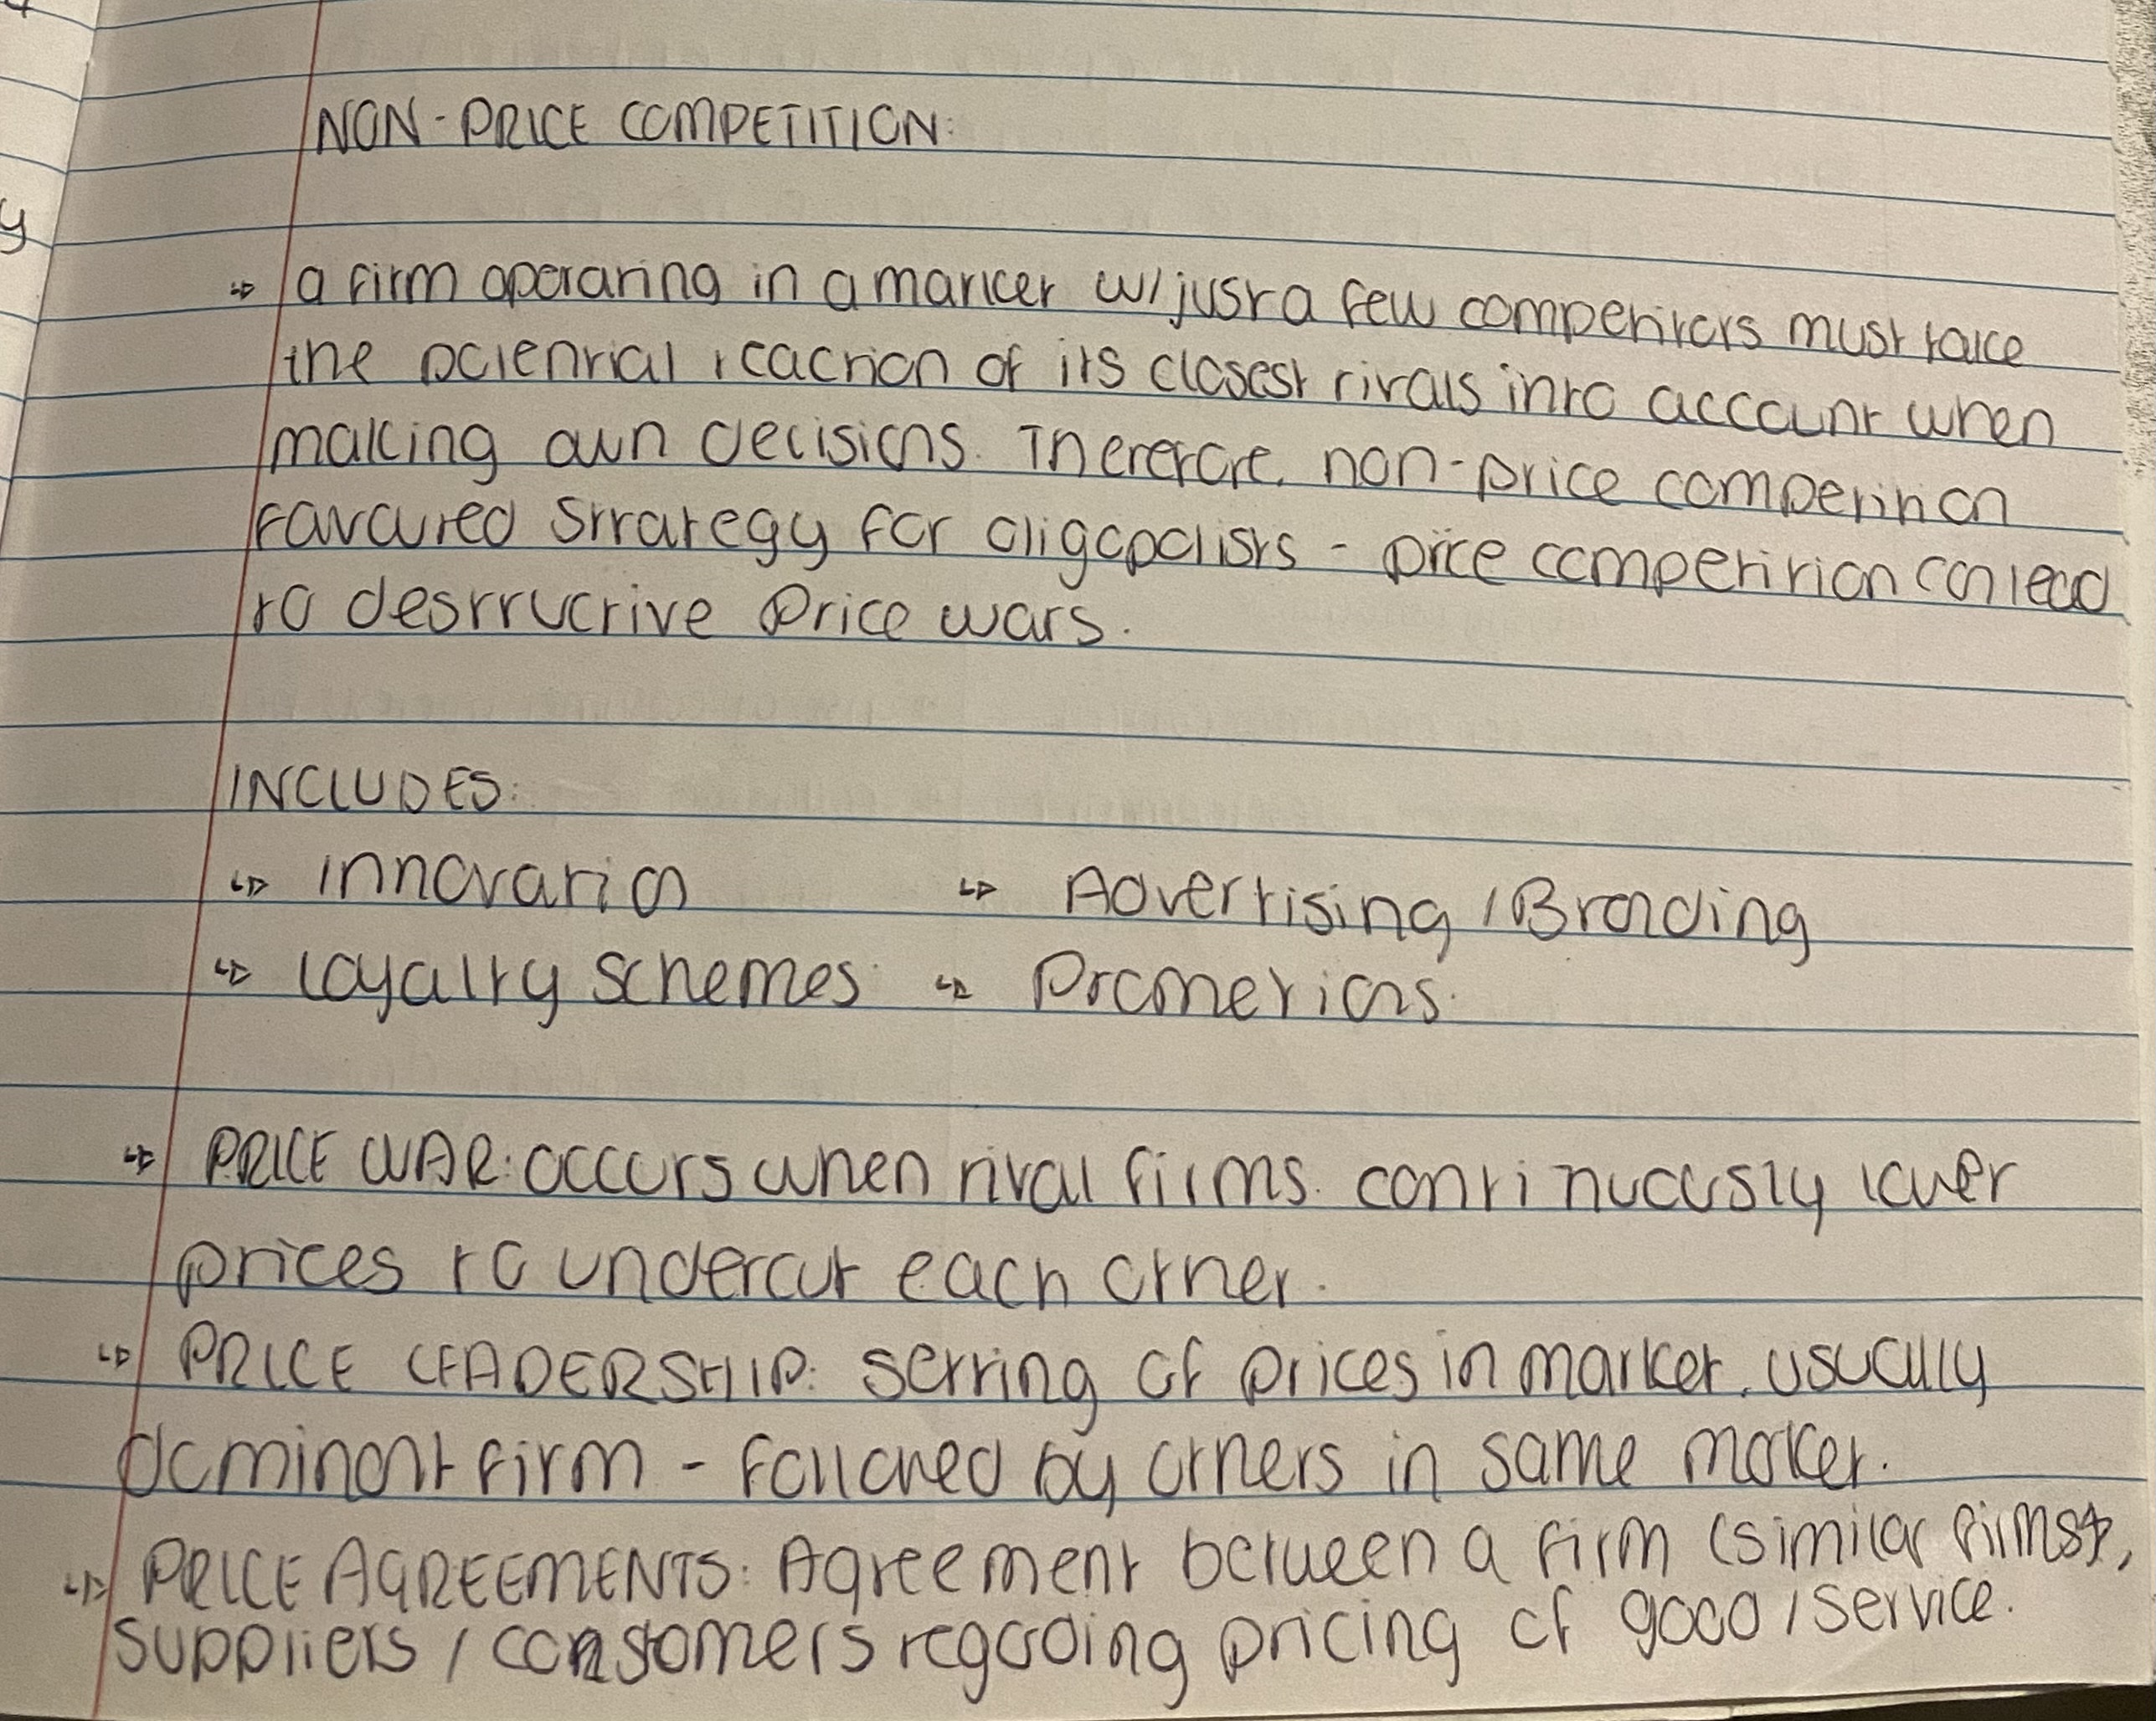 y
NON-PRICE COMPETITION:
↳ a firm operating in a market w/ just a few competitors must take
the potential reaction of its closest rivals into account when
making own decisions. Therefore, non-price competition
favoured strategy for oligopolists - price competition can lead
to destructive price wars.
INCLUDES:
↳ innovation ↳ Advertising / Branding
↳ Loyalty schemes ↳ Promotions.
↳ PRICE WAR: occurs when rival firms continuously lower
prices to undercut each other.
↳ PRICE LEADERSHIP: setting of prices in market, usually
dominant firm - followed by others in same market.
↳ PRICE AGREEMENTS: Agreement between a firm (similar firms),
suppliers / consumers regarding pricing of good / service.